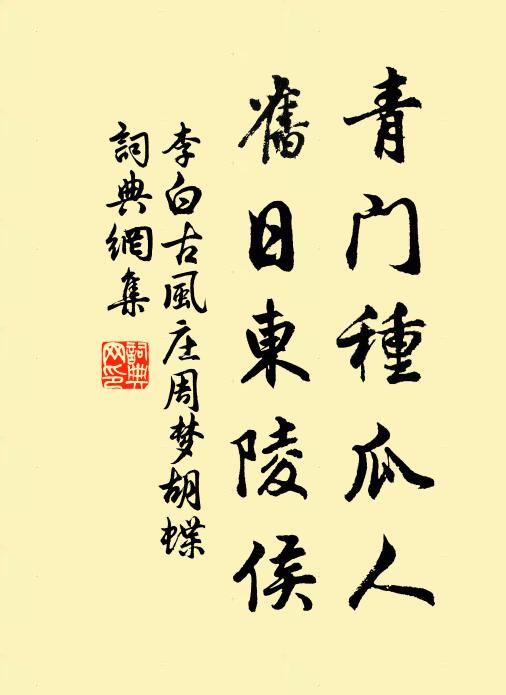 青门種瓜人
舊日東陵侯
李白古風庄周梦胡蝶
詞典網集
詞典
网印